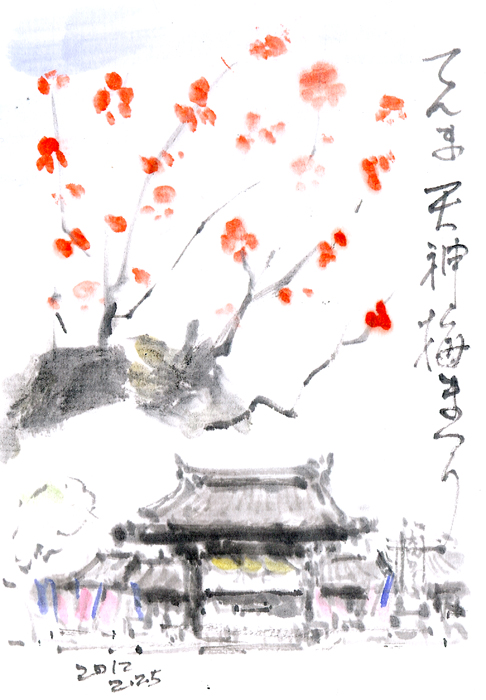 てんま 天神梅まつり
2012
2.25